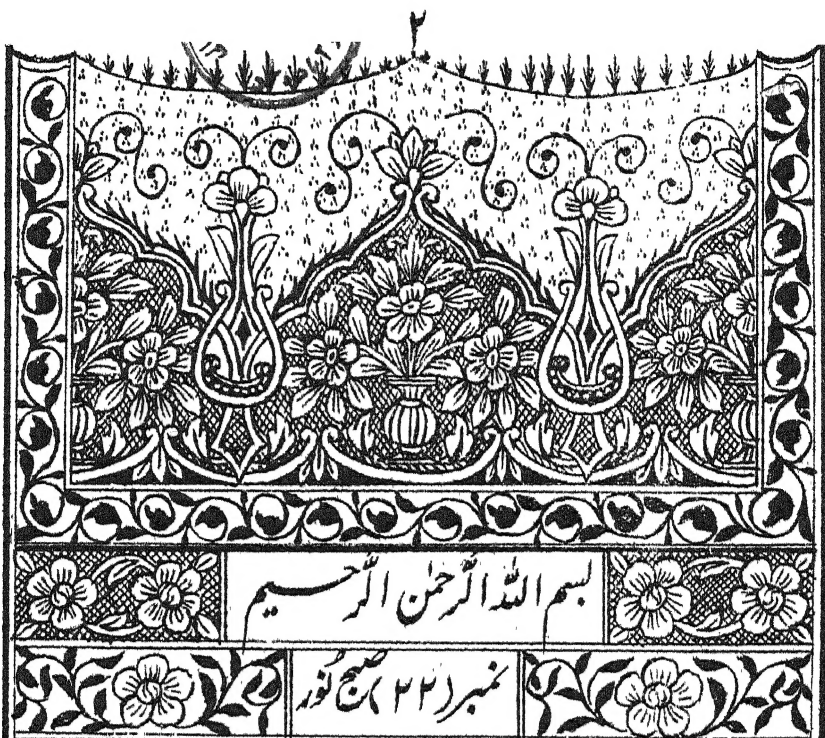 ۲
بسم اللہ الرحمٰن الرحیم
نمبر (۲۲) صبح نور